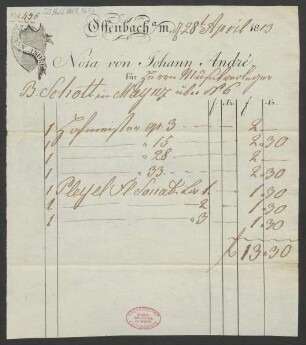 Offenbach a/m. d 28t April 1813
Nota von Johann André
für Herrn Musikverleger
B. Schott in Maynz
f xr. f xr.
1 Hofmeister op 3 2
1 " 15 2 30
1 " 28 2
1 " 33 2 30
1 Pleyel Sonat. 1 1 30
1 2 1 30
1 " 3 1 30
f 13 30